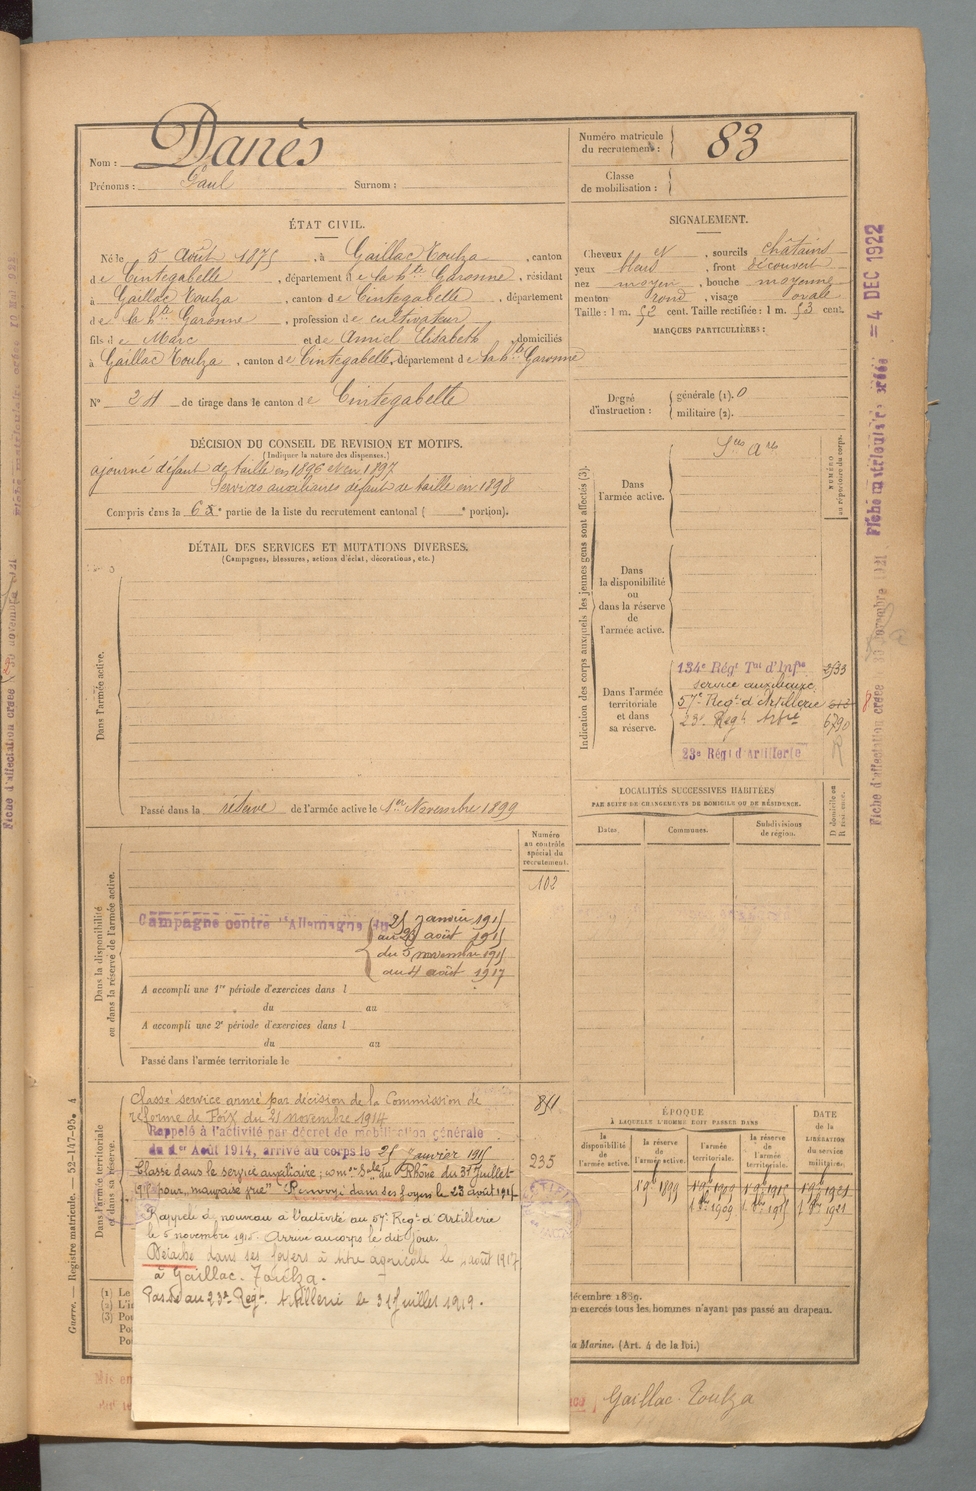 Nom : Danès
Prénoms : Paul Surnom :
Numéro matricule du recrutement : 83
Classe de mobilisation :
ÉTAT CIVIL.
Né le 5 Août 1875, à Gaillac Toulza, canton
de Cintegabelle, département de la hte Garonne, résidant
à Gaillac Toulza, canton de Cintegabelle, département
de la hte Garonne, profession de cultivateur
fils de Marc et de Amiel Elisabeth, domiciliés
à Gaillac Toulza, canton de Cintegabelle, département de la hte Garonne
N° 24 de tirage dans le canton de Cintegabelle
SIGNALEMENT.
Cheveux et, sourcils châtains
yeux, front découvert
nez moyen, bouche moyenne
menton rond, visage ovale
Taille : 1 m. 52 cent. Taille rectifiée : 1 m. 53 cent.
MARQUES PARTICULIÈRES :
Degré d'instruction : générale (1). 0
militaire (2).
DÉCISION DU CONSEIL DE REVISION ET MOTIFS.
(Indiquer la nature des dispenses.)
ajourné défaut de taille en 1896 et en 1897
Services auxiliaires défaut de taille en 1898
Compris dans la 6e partie de la liste du recrutement cantonal ( e portion).
DÉTAIL DES SERVICES ET MUTATIONS DIVERSES.
(Campagnes, blessures, actions d'éclat, décorations, etc.)
Dans l'armée active.
Passé dans la réserve de l'armée active le 1er Novembre 1899
Indication des corps auxquels les jeunes gens sont affectés (3).
NUMÉRO au répertoire du corps.
Dans l'armée active.
Dans la disponibilité ou dans la réserve de l'armée active.
Dans l'armée territoriale et dans sa réserve.
134e Régt Tal d'Infie
service auxiliaire
57e Regt d'Artillerie
23e Regt Artie 6790
23e Régt d'Artillerie R
LOCALITÉS SUCCESSIVES HABITÉES
PAR SUITE DE CHANGEMENTS DE DOMICILE OU DE RÉSIDENCE.
Dates. Communes. Subdivisions de région. D domicile ou R résidence.
Dans la disponibilité ou dans la réserve de l'armée active.
Numéro au contrôle spécial du recrutement.
102
Campagne contre l'Allemagne du 25 Janvier 1915
au 23 août 1915
du 5 novembre 1915
au 4 août 1917
A accompli une 1re période d'exercices dans l
du au
A accompli une 2e période d'exercices dans l
du au
Passé dans l'armée territoriale le
Dans l'armée territoriale et dans sa réserve.
Classé service armé par décision de la Commission de
réforme de Foix du 21 novembre 1914
Rappelé à l'activité par décret de mobilisation générale
du 1er Août 1914, arrivé au corps le 25 janvier 1915
Classé dans le service auxiliaire comon Sle du Rhône du 31 Juillet
1915 pour "mauvaise vue" Renvoyé dans ses foyers le 23 août 1915
Rappelé de nouveau à l'activité au 57e Regt d'Artillerie
le 5 novembre 1915. Arrivé au corps le dit jour.
Détaché dans ses foyers à titre agricole le août 1917
à Gaillac-Toulza.
Passé au 23e Regt Artillerie le 31 Juillet 1919.
851
235
ÉPOQUE
À LAQUELLE L'HOMME DOIT PASSER DANS
la disponibilité de l'armée active. la réserve de l'armée active. l'armée territoriale. la réserve de l'armée territoriale.
DATE de la LIBÉRATION du service militaire.
1er 9bre 1899
Guerre. — Registre matricule. — 52-147-95. A
décembre 1889.
exercés tous les hommes n'ayant pas passé au drapeau.
la Marine. (Art. 4 de la loi.)
Gaillac-Toulza
Fiche d'affectation créée 30 novembre 1921
Fiche matriculaire créée = 4 DEC 1922